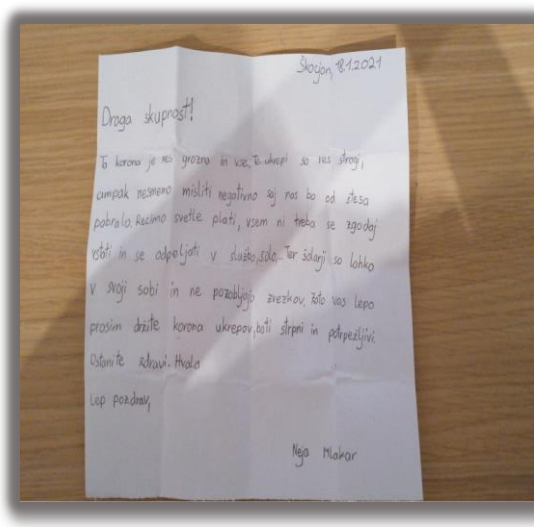 Škocjan, 18.1.2021
Draga skupnost!
Ta korona je res grozna in vse. Ta ukrepi so res strogi,
ampak nesmemo misliti negativno saj nas bo od stesa
pobralo. Recimo svetle plati, vsem ni treba se zgodaj
vstati in se odpeljati v službo, šolo.. Ter šolarji so lahko
v svoji sobi in ne pozabljajo zvezkov. Zato vas lepo
prosim držite korona ukrepov, boti strpni in potrpežljivi.
Ostanite zdravi. Hvala
Lep pozdrav,
Neja Mlakar